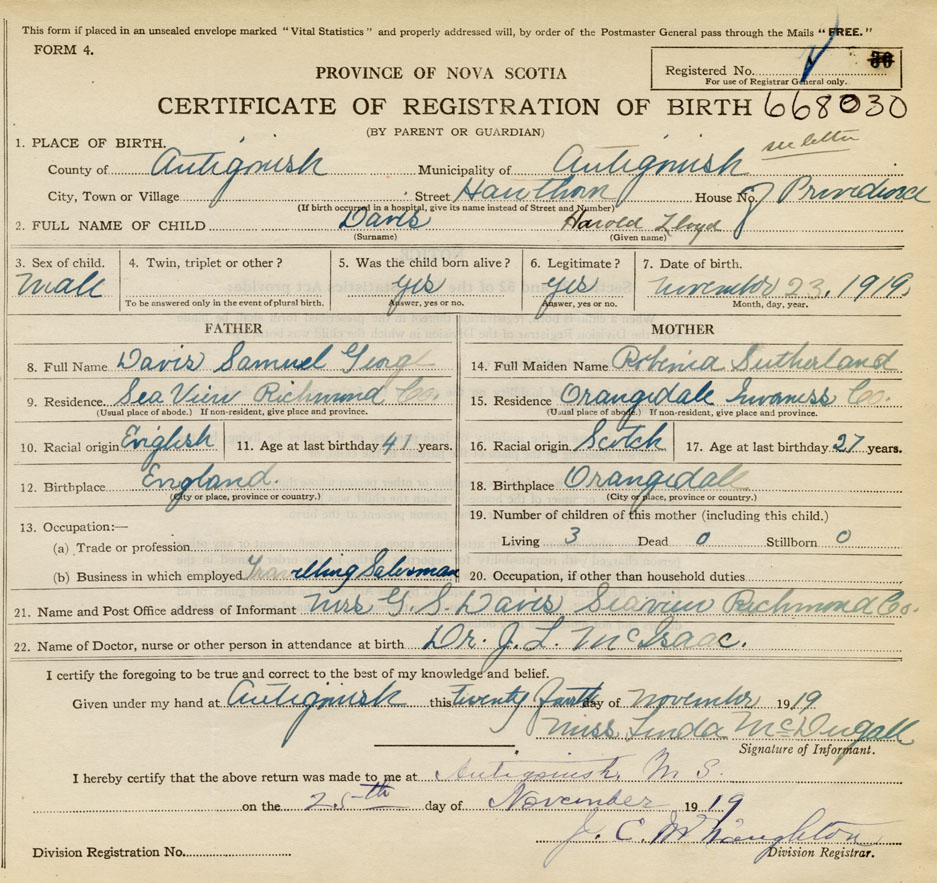 This form if placed in an unsealed envelope marked "Vital Statistics" and properly addressed will, by order of the Postmaster General pass through the Mails "FREE."
FORM 4.
PROVINCE OF NOVA SCOTIA
Registered No.
For use of Registrar General only.
CERTIFICATE OF REGISTRATION OF BIRTH 668030
(BY PARENT OR GUARDIAN)
see letter
1. PLACE OF BIRTH.
County of Antigonish Municipality of Antigonish
City, Town or Village Street Hawthorn House No. Providence
(If birth occurred in a hospital, give its name instead of Street and Number)
2. FULL NAME OF CHILD Davis Harold Lloyd
(Surname) (Given name)
3. Sex of child. 4. Twin, triplet or other? 5. Was the child born alive? 6. Legitimate? 7. Date of birth.
Male yes yes November 23, 1919
To be answered only in the event of plural birth. Answer, yes or no. Answer, yes or no. Month, day, year.
FATHER MOTHER
8. Full Name Davis Samuel George 14. Full Maiden Name Robinia Sutherland
9. Residence Sea View Richmond Co. 15. Residence Orangedale Inverness Co.
(Usual place of abode.) If non-resident, give place and province. (Usual place of abode.) If non-resident, give place and province.
10. Racial origin English 11. Age at last birthday 41 years. 16. Racial origin Scotch 17. Age at last birthday 27 years.
12. Birthplace England. 18. Birthplace Orangedale
(City or place, province or country.) (City or place, province or country.)
13. Occupation:— 19. Number of children of this mother (including this child.)
(a) Trade or profession Living 3 Dead 0 Stillborn 0
(b) Business in which employed Travelling Salesman 20. Occupation, if other than household duties
21. Name and Post Office address of Informant Mrs G. S. Davis Seaview Richmond Co.
22. Name of Doctor, nurse or other person in attendance at birth Dr. J. L. McIsaac.
I certify the foregoing to be true and correct to the best of my knowledge and belief.
Given under my hand at Antigonish this twenty fourth day of November 1919
Miss Linda McDugall
Signature of Informant.
I hereby certify that the above return was made to me at Antigonish, N.S.
on the 25th day of November 1919
J. C. McNaughton
Division Registration No. Division Registrar.